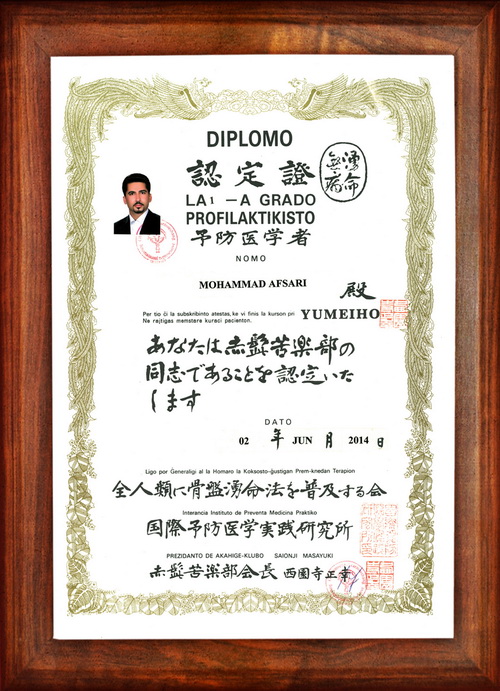 DIPLOMO
認定證
湧命
無病
LA1 -A GRADO
PROFILAKTIKISTO
予防医学者
NOMO
MOHAMMAD AFSARI
殿
Per tio ĉi la subskribinto atestas, ke vi finis la kurson pri YUMEIHO
Ne rajtigas memstare kuraci pacienton.
あなたは赤髭苦楽部の
同志であることを認定いた
します
DATO
02 年 JUN 月 2014 日
Ligo por Ĝeneraligi al la Homaro la Koksosto-ĝustigan Prem-knedan Terapion
全人類に骨盤湧命法を普及する会
Interancia Instituto de Preventa Medicina Praktiko
国際予防医学実践研究所
PREZIDANTO DE AKAHIGE-KLUBO SAIONJI MASAYUKI
赤髭苦楽部会長 西園寺正幸